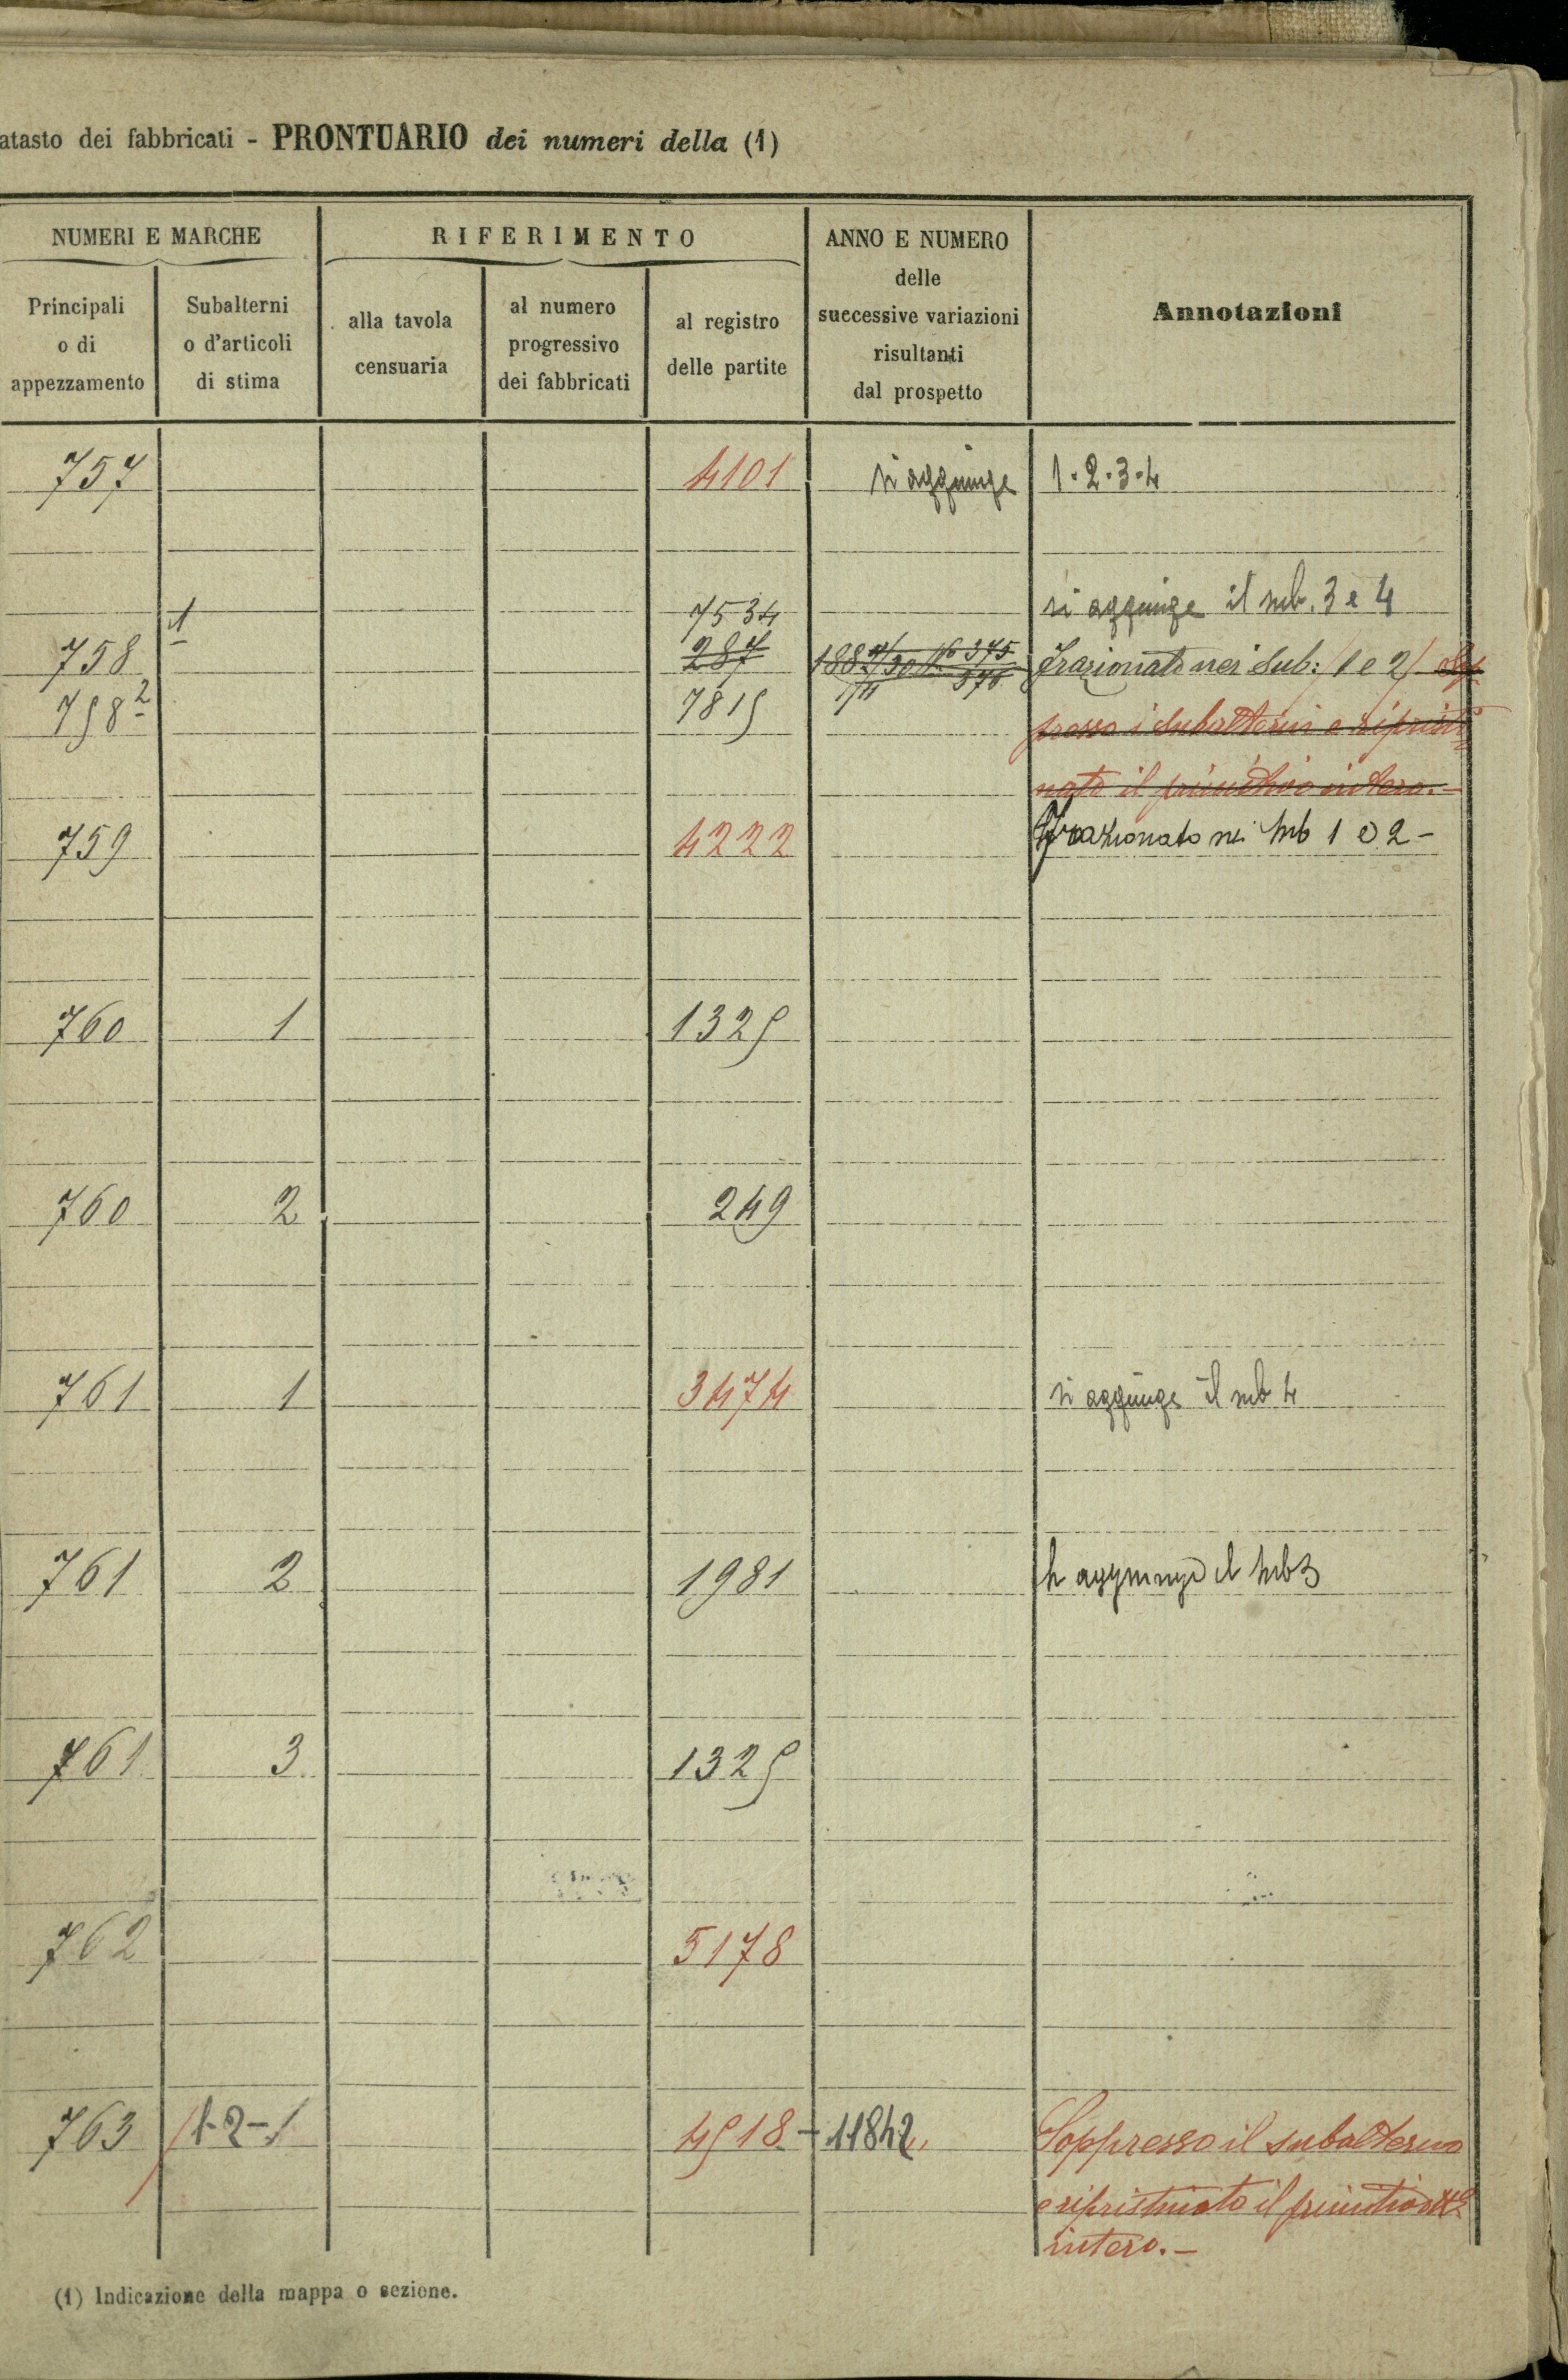 atasto dei fabbricati - PRONTUARIO dei numeri della (1)
NUMERI E MARCHE RIFERIMENTO ANNO E NUMERO delle successive variazioni risultanti dal prospetto Annotazioni
Principali o di appezzamento Subalterni o d'articoli di stima alla tavola censuaria al numero progressivo dei fabbricati al registro delle partite
757 4101 si aggiunge 1-2-3-4
1 7534 si aggiunge il sub. 3 e 4
758 287 188 30 No 375 Frazionato nei Sub: 1 e 2/ Sop
376
758 2 7815 presso i subalterni e ripristi
nato il primitivo intero.-
759 4222 Frazionato nei sub 1 e 2-
760 1 1325
760 2 249
761 1 3474 si aggiunge il sub 4
761 2 1981 si aggiunge il sub 3
761 3 1325
762 5178
763 1-2-1 4518-11842 Soppresso il subalterno
e ripristinato il primitivo No
intero.-
(1) Indicazione della mappa o sezione.